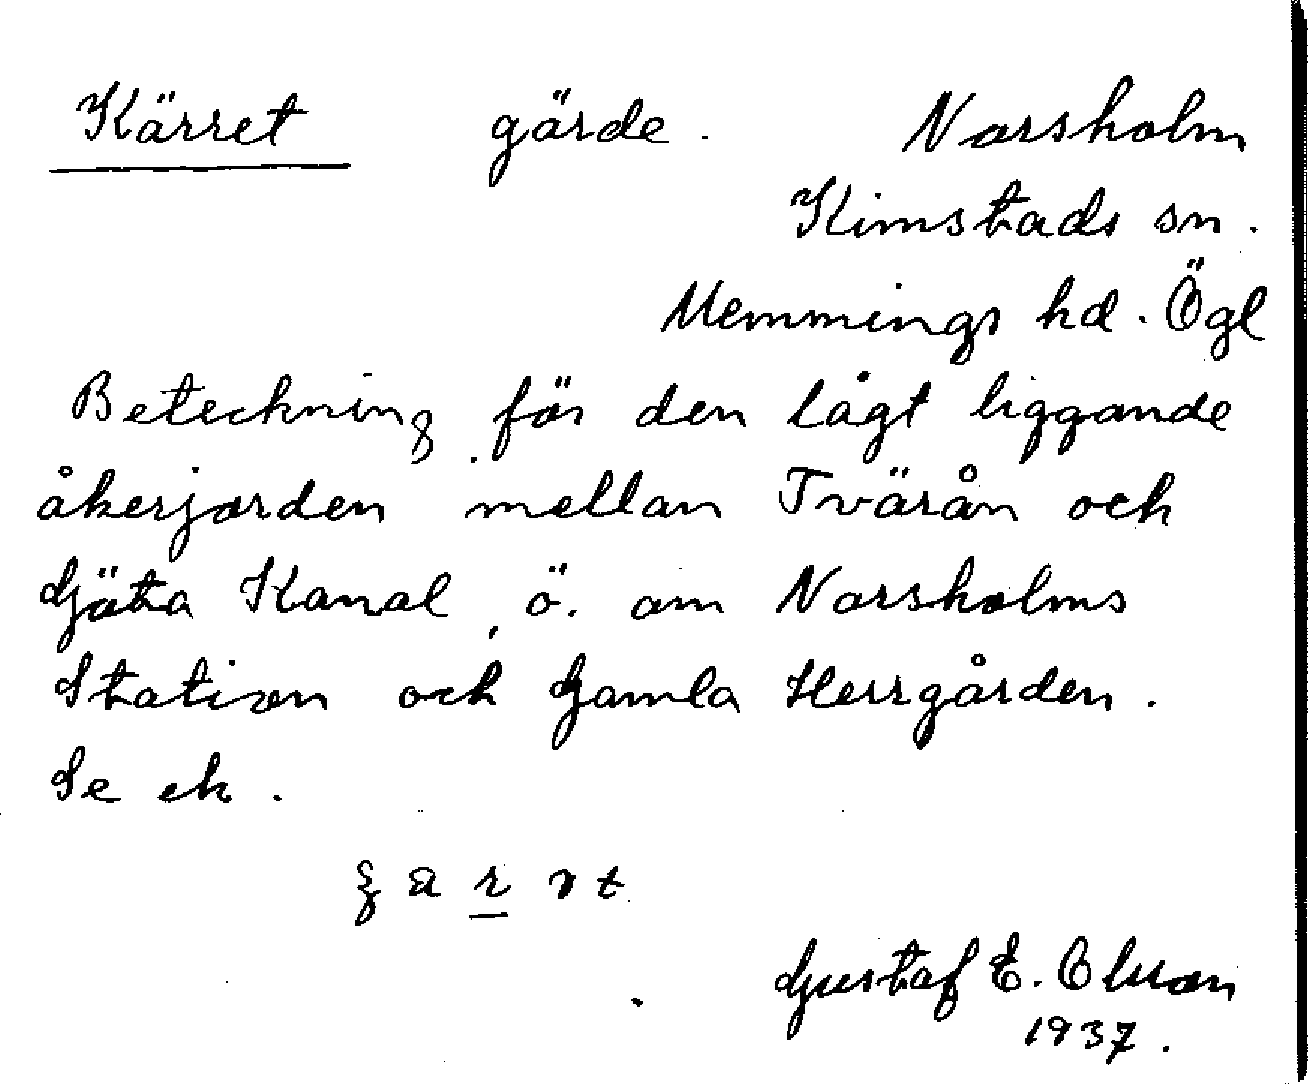 Kärret gärde. Norsholm
Kimstads sn.
Memmings hd. Ögl
Beteckning för den lågt liggande
åkerjorden mellan Tvärån och
Göta Kanal, ö. om Norsholms
Station och Gamla Herrgården.
Se ek.
Gustaf E. Olsson
1937.